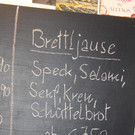 Brettljause
Speck, Salami,
Senf, Kren,
Schüttelbrot